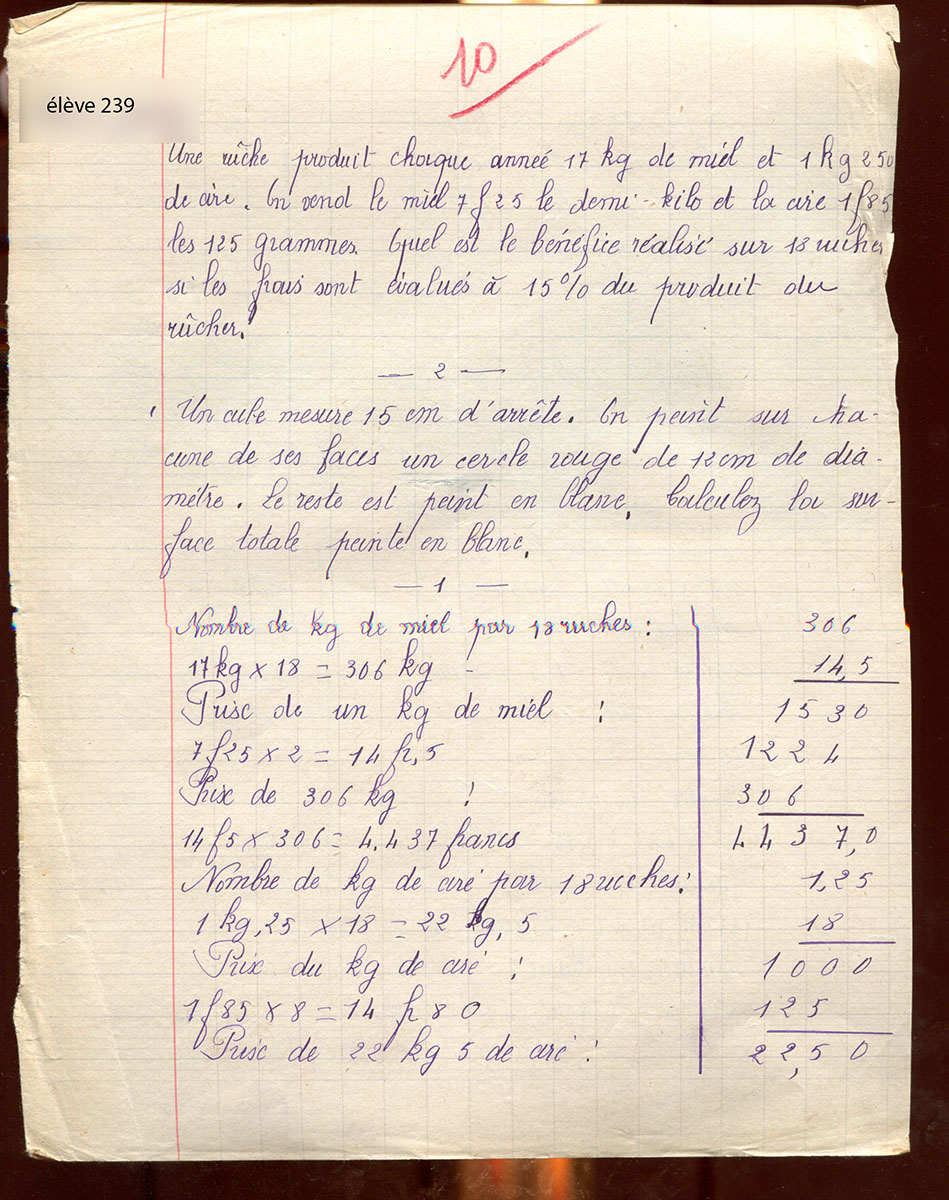 10
élève 239
Une rûche produit chaque anneé 17 kg de miel et 1 kg 250
de cire. On vend le miel 7f25 le demi-kilo et la cire 1f85
les 125 grammes. Quel est le bénéfice réalisé sur 18 ruches
si les frais sont évalués à 15% du produit du
rûcher.
— 2 —
Un cube mesure 15 cm d'arrête. On peint sur cha-
cune de ses faces un cercle rouge de 12cm de dia-
mètre. Le reste est peint en blanc. Calculez la sur-
face totale peinte en blanc.
— 1 —
Nombre de kg de miel par 18 ruches : 306
17kg x 18 = 306 kg 14,5
Prix de un kg de miel : 1530
7f25 x 2 = 14 fr,5 1224
Prix de 306 kg : 306
14f5 x 306 = 4.437 francs 4437,0
Nombre de kg de ciré par 18 ruches : 1,25
1 kg,25 x 18 = 22 kg, 5 18
Prix du kg de ciré : 1000
1f85 x 8 = 14 fr 80 125
Prix de 22 kg 5 de ciré : 22,50